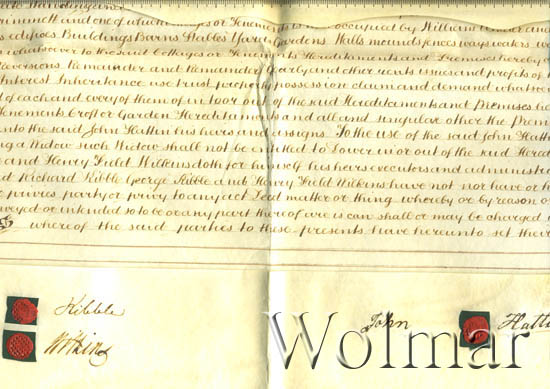 and one of which
occupied by William
Buildings Barns Stables Yards Gardens Walls mounds fences ways waters
whatsoever to the said Cottages or Tenements Hereditaments and Premises hereby
Reversions Remainder and Remainders Yearly and other rents issues and profits of
Interest Inheritance use trust property possession claim and demand
of each and every of them of in to or out of the said Hereditaments and Premises
Tenements Croft or Garden Hereditaments and all and singular other the
unto the said John Hattin his heirs and assigns To the use of the said John
Widow such Widow shall not be entitled to Dower in or out of the said
and Henry Field Wilkins doth for himself his heirs executors and
Richard Kibble George Kibble and Henry Field Wilkins have not nor have or
or privies party or privy to any act Deed matter or thing whereby or by reason
or intended so to be or any part thereof are is can shall or may be charged
whereof the said parties to these presents have hereunto set their
Kibble
Wilkins
John Hatti
Wolmar